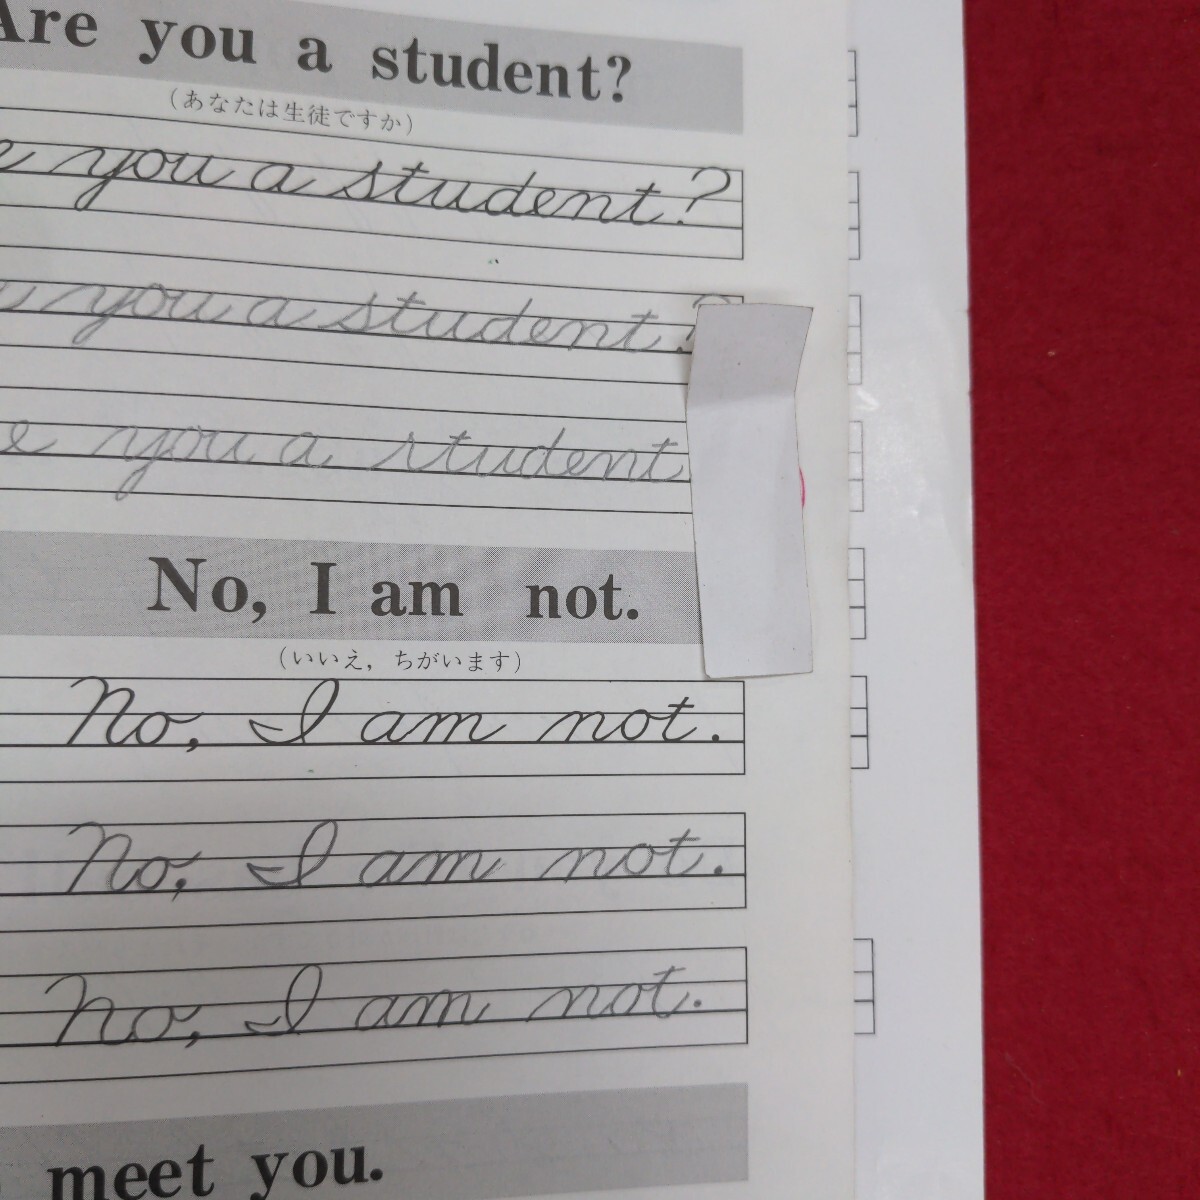 Are you a student?
(あなたは生徒ですか)
e you a student?
you a student?
e you a student
No, I am not.
(いいえ, ちがいます)
No, I am not.
No, I am not.
No, I am not.
meet you.